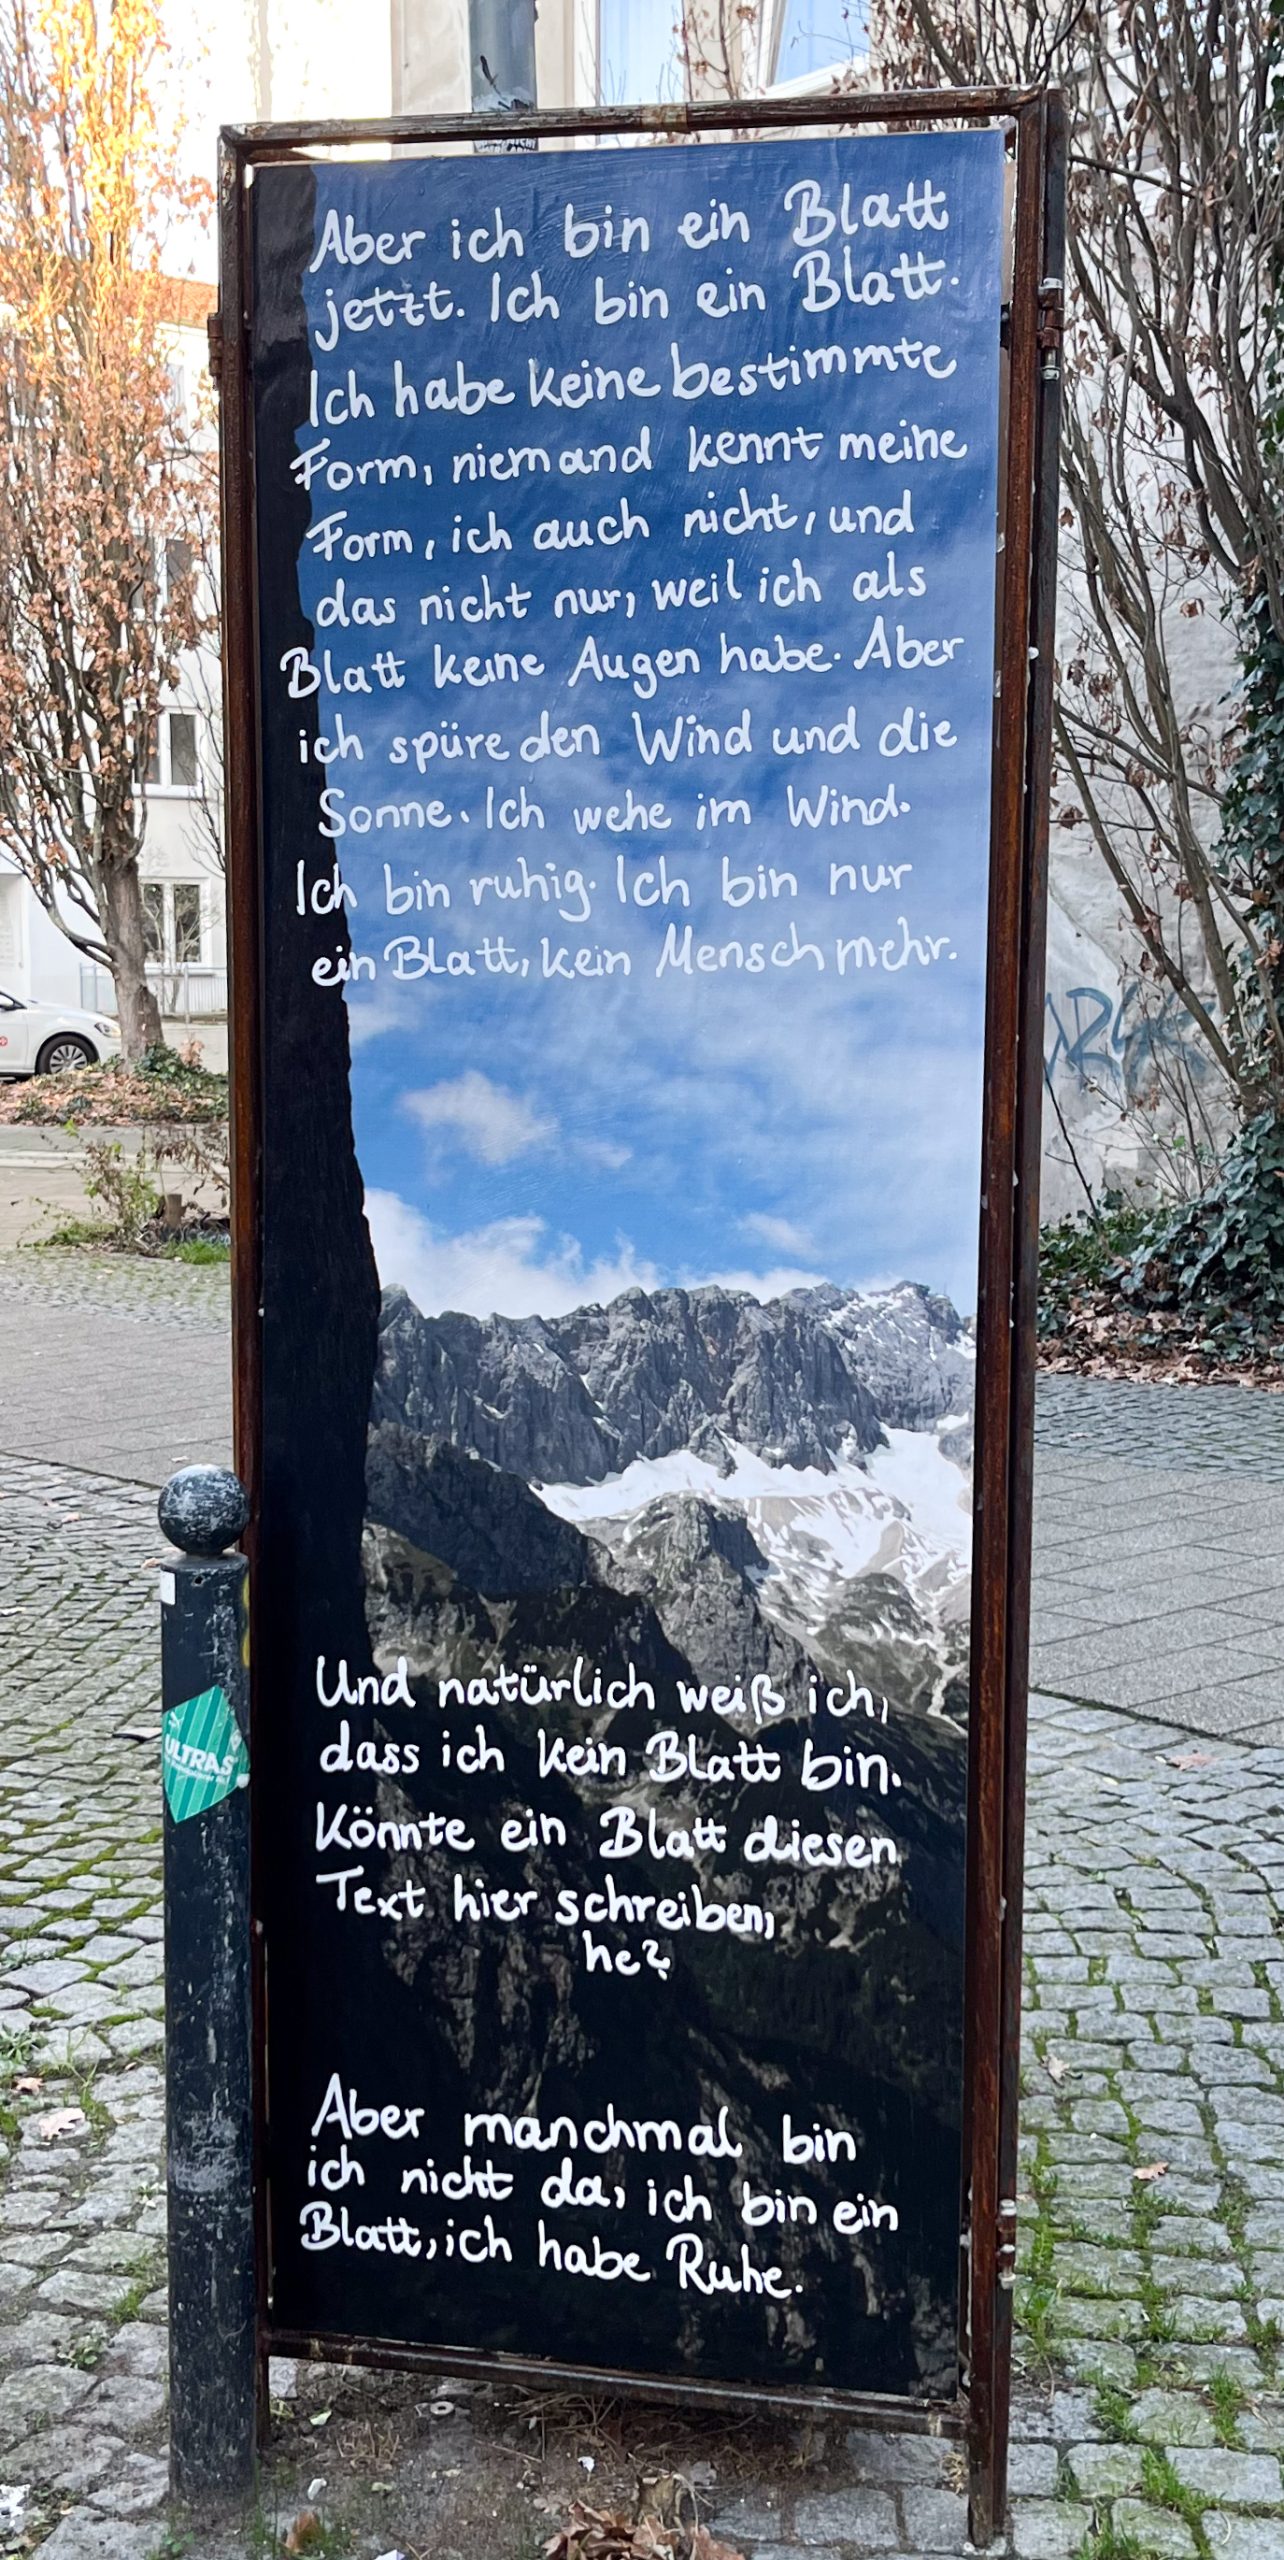 Aber ich bin ein Blatt
jetzt. Ich bin ein Blatt.
Ich habe keine bestimmte
Form, niemand kennt meine
Form, ich auch nicht, und
das nicht nur, weil ich als
Blatt keine Augen habe. Aber
ich spüre den Wind und die
Sonne. Ich wehe im Wind.
Ich bin ruhig. Ich bin nur
ein Blatt, kein Mensch mehr.
Und natürlich weiß ich,
dass ich kein Blatt bin.
Könnte ein Blatt diesen
Text hier schreiben,
he?
Aber manchmal bin
ich nicht da, ich bin ein
Blatt, ich habe Ruhe.
ULTRAS